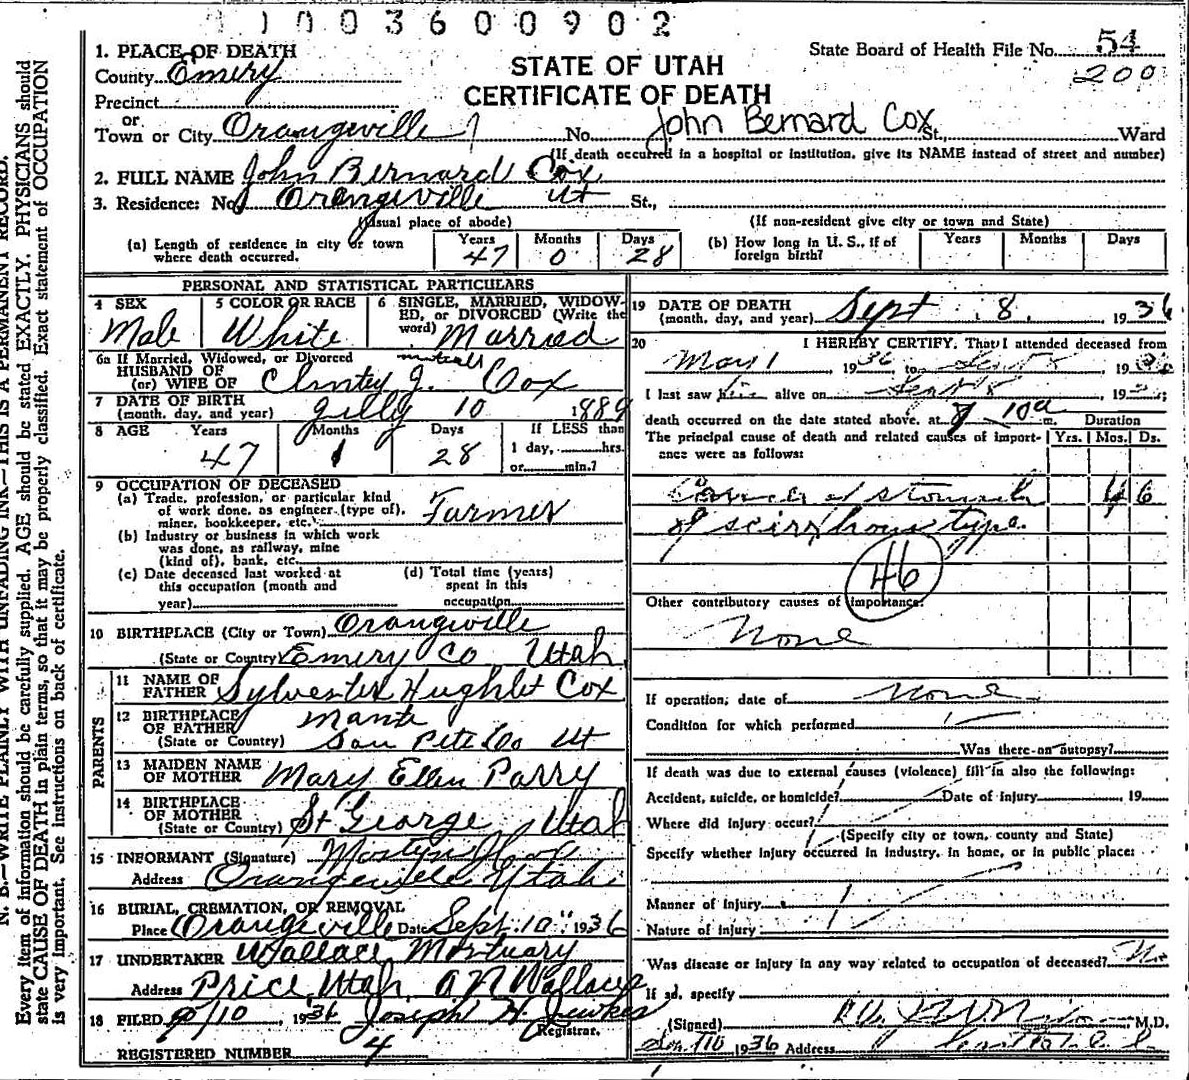 1003600902
1. PLACE OF DEATH
County Emery
Precinct
or
Town or City Orangeville
STATE OF UTAH
CERTIFICATE OF DEATH
State Board of Health File No. 54
200
No. John Bernard Cox St., Ward
(If death occurred in a hospital or institution, give its NAME instead of street and number)
2. FULL NAME John Bernard Cox
3. Residence: No. Orangeville Ut St.,
(Usual place of abode) (If non-resident give city or town and State)
(a) Length of residence in city or town where death occurred. Years 47 Months 0 Days 28
(b) How long in U. S., if of foreign birth? Years Months Days
PERSONAL AND STATISTICAL PARTICULARS
4 SEX Male
5 COLOR OR RACE White
6 SINGLE, MARRIED, WIDOWED, or DIVORCED (Write the word) Married
6a If Married, Widowed, or Divorced
HUSBAND OF
(or) WIFE OF J. Cox
7 DATE OF BIRTH
(month, day, and year) 10 1889
8 AGE Years 47 Months 1 Days 28 If LESS than 1 day, hrs. or min.?
9 OCCUPATION OF DECEASED
(a) Trade, profession, or particular kind
of work done, as engineer (type of), Farmer
miner, bookkeeper, etc.
(b) Industry or business in which work
was done, as railway, mine
(kind of), bank, etc.
(c) Date deceased last worked at this occupation (month and year)
(d) Total time (years) spent in this occupation
10 BIRTHPLACE (City or Town) Orangeville
(State or Country) Emery Co Utah
PARENTS
11 NAME OF FATHER Sylvester Hughlet Cox
12 BIRTHPLACE OF FATHER Manti
(State or Country) San Pete Co Ut
13 MAIDEN NAME OF MOTHER Mary Ellen Parry
14 BIRTHPLACE OF MOTHER
(State or Country) St George Utah
15 INFORMANT (Signature)
Address Orangeville Utah
16 BURIAL, CREMATION, OR REMOVAL
Place Orangeville Date Sept. 10 1936
17 UNDERTAKER Wallace Mortuary
Address Price Utah. A N Wallace
18 FILED 9/10, 1936 Joseph H. Jewkes
Registrar.
REGISTERED NUMBER 4
19 DATE OF DEATH
(month, day, and year) Sept. 8. 1936
20 I HEREBY CERTIFY, That I attended deceased from
May 1 1936 to Sept 8 19
I last saw him alive on Sept 8 19 ;
death occurred on the date stated above, at 10a m.
The principal cause of death and related causes of importance were as follows:
Duration Yrs. Mos. Ds.
of stomach 4 6
of scirrhous type.
46
Other contributory causes of importance:
None
If operation, date of None
Condition for which performed
Was there an autopsy?
If death was due to external causes (violence) fill in also the following:
Accident, suicide, or homicide? Date of injury 19
Where did injury occur?
(Specify city or town, county and State)
Specify whether injury occurred in industry, in home, or in public place:
Manner of injury
Nature of injury
Was disease or injury in any way related to occupation of deceased? No
If so, specify
(Signed) M.D.
1936 Address
N. B.—WRITE PLAINLY WITH UNFADING INK—THIS IS A PERMANENT RECORD.
Every item of information should be carefully supplied. AGE should be stated EXACTLY. PHYSICIANS should
state CAUSE OF DEATH in plain terms, so that it may be properly classified. Exact statement of OCCUPATION
is very important. See instructions on back of certificate.